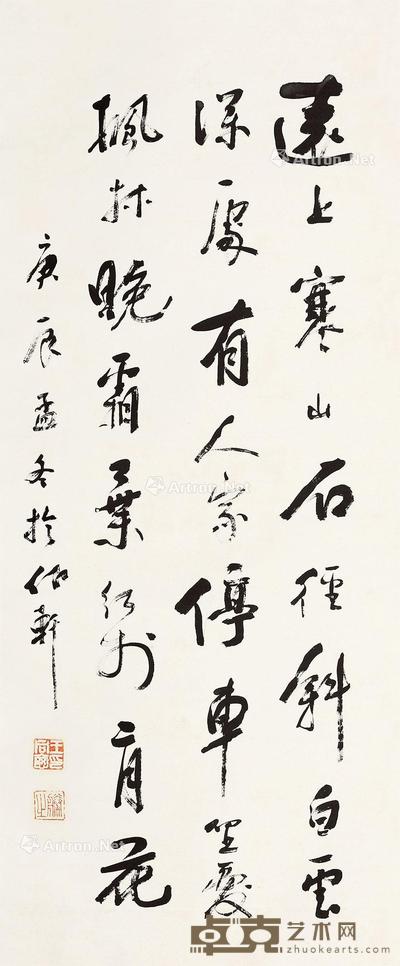 遠上寒山石徑斜白雲
深處有人家停車坐愛
楓林晚霜葉紅於二月花
庚辰孟冬於軒
Artron.Net
Artron.Net
Artron.Net
Artron.Net
Artron.Net
卓克艺术网
zhuokearts.com